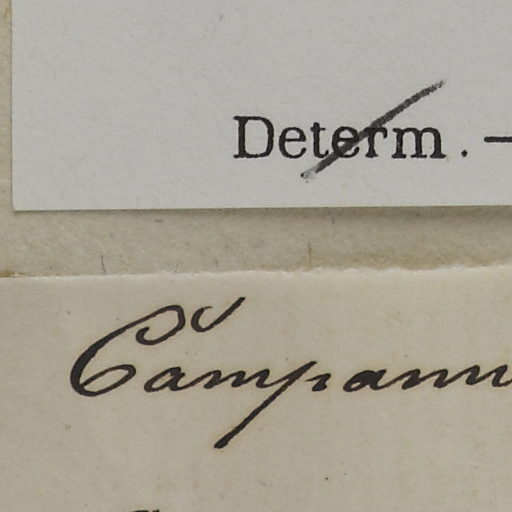 Determ. —
Campanu